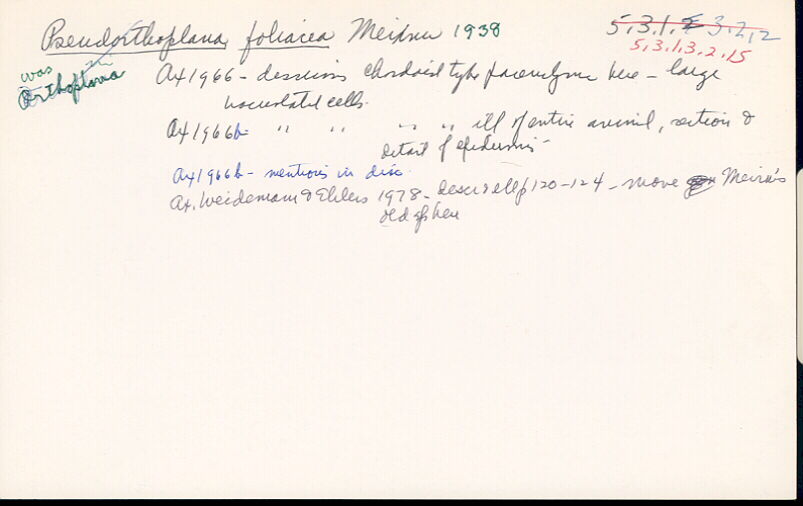 Pseudorthoplana foliacea Meixner 1938
5.3.1.2 3.2.2
5.3.1.3.2.15
was
Orthoplana
Ax 1966 - discusses chordoid type parenchyma here - large
vacuolated cells.
Ax 1966b " " " " ill of entire animal, section &
detail of epidermis -
Ax 1966b - mentions in disc.
Ax, Weidemann & Ehlers 1978 - descr & ill p 120-124 - move Meixner's
old sp here